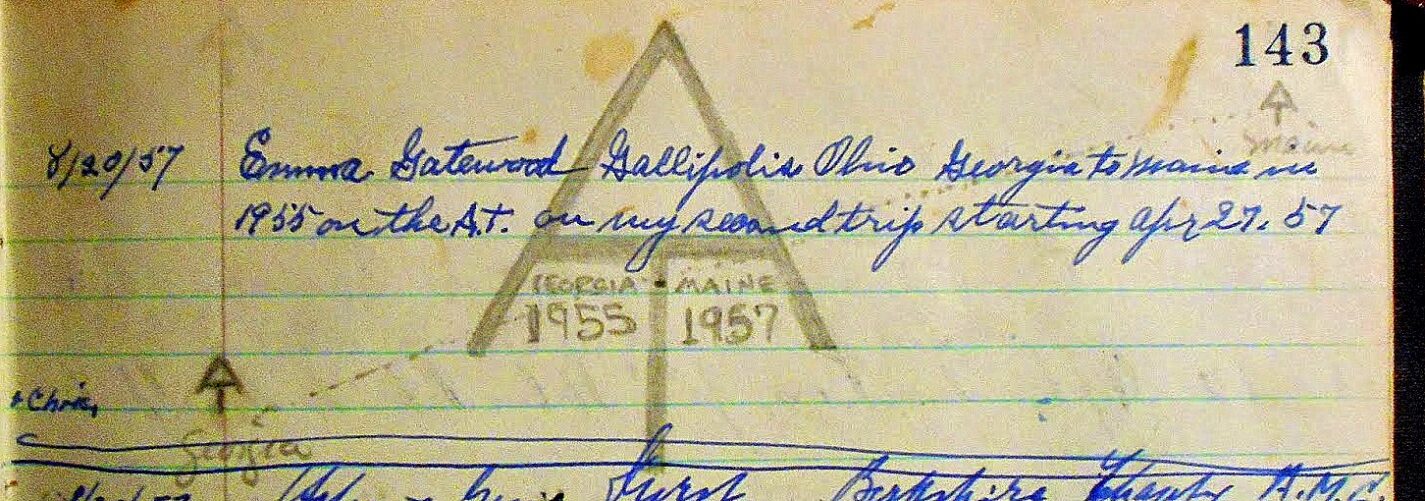 143
Maine
8/20/57 Emma Gatewood Gallipolis Ohio Georgia to Maine in
1955 on the A.T. on my second trip starting Apr 27. 57
GEORGIA - MAINE
1955 1957
Georgia
Berkshire